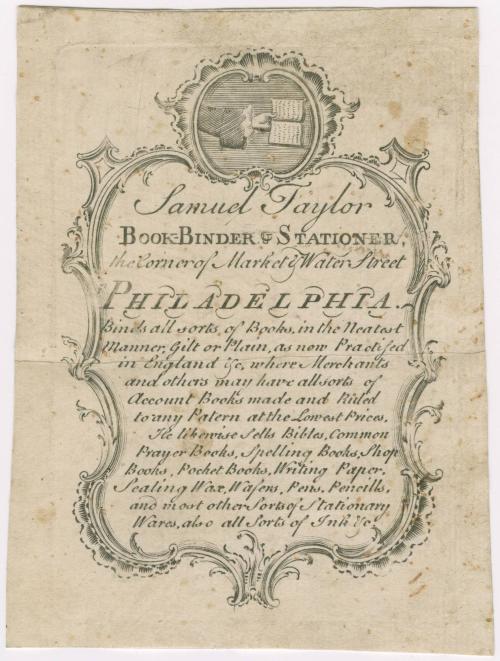 Samuel Taylor
BOOK-BINDER & STATIONER,
the Corner of Market & Water Street
PHILADELPHIA.
Binds all sorts, of Books, in the Neatest
Manner, Gilt or Plain, as now Practised
in England &c, where Merchants
and others may have all sorts of
Account Books made and Ruled
to any Patern at the Lowest Prices,
He likewise Sells Bibles, Common
Prayer Books, Spelling Books, Shop
Books, Pocket Books, Writing Paper,
Sealing Wax, Wafers, Pens, Pencills,
and most other Sorts of Stationary
Wares, also all Sorts of Ink &c